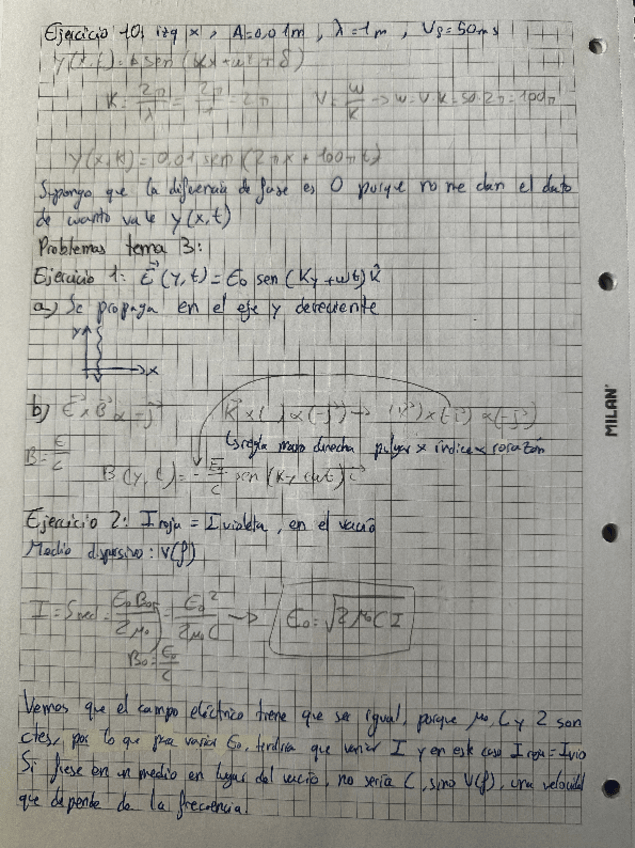 Ejercicio 10: izq x, A=0,01m, λ=1m, Vp=50ms
y(x,t)=A sen(kx+ωt+δ)
K=2π/λ=2π/1=2π V=ω/K → ω=V·K=50·2π=100π
y(x,t)=0,01 sen(2πx+100πt)
Supongo que la diferencia de fase es 0 porque no me dan el dato
de cuanto vale y(x,t)
Problemas tema 3:
Ejercicio 1: E⃗(y,t)=E₀ sen(Ky+ωt)k̂
a) Se propaga en el eje y decreciente
y
x
b) E⃗×B⃗ α -j⃗ K⃗×( )α(-j⃗) → (k⃗)×(-i⃗) α(-j⃗)
↳ regla mano derecha pulgar × índice × corazón
B=E/C
B(y,t)=-E₀/C sen(Ky+ωt)i⃗
Ejercicio 2: I roja = I violeta, en el vacío
Medio dispersivo: v(f)
I=Smed=E₀B₀/2μ₀=E₀²/2μ₀C → E₀=√2μ₀CI
B₀=E₀/C
Vemos que el campo eléctrico tiene que ser igual, porque μ₀, C y 2 son
ctes, por lo que para variar E₀, tendría que variar I y en este caso I roja=I vio
Si fuese en un medio en lugar del vacío, no sería C, sino V(f), una velocidad
que depende de la frecuencia.
MILAN